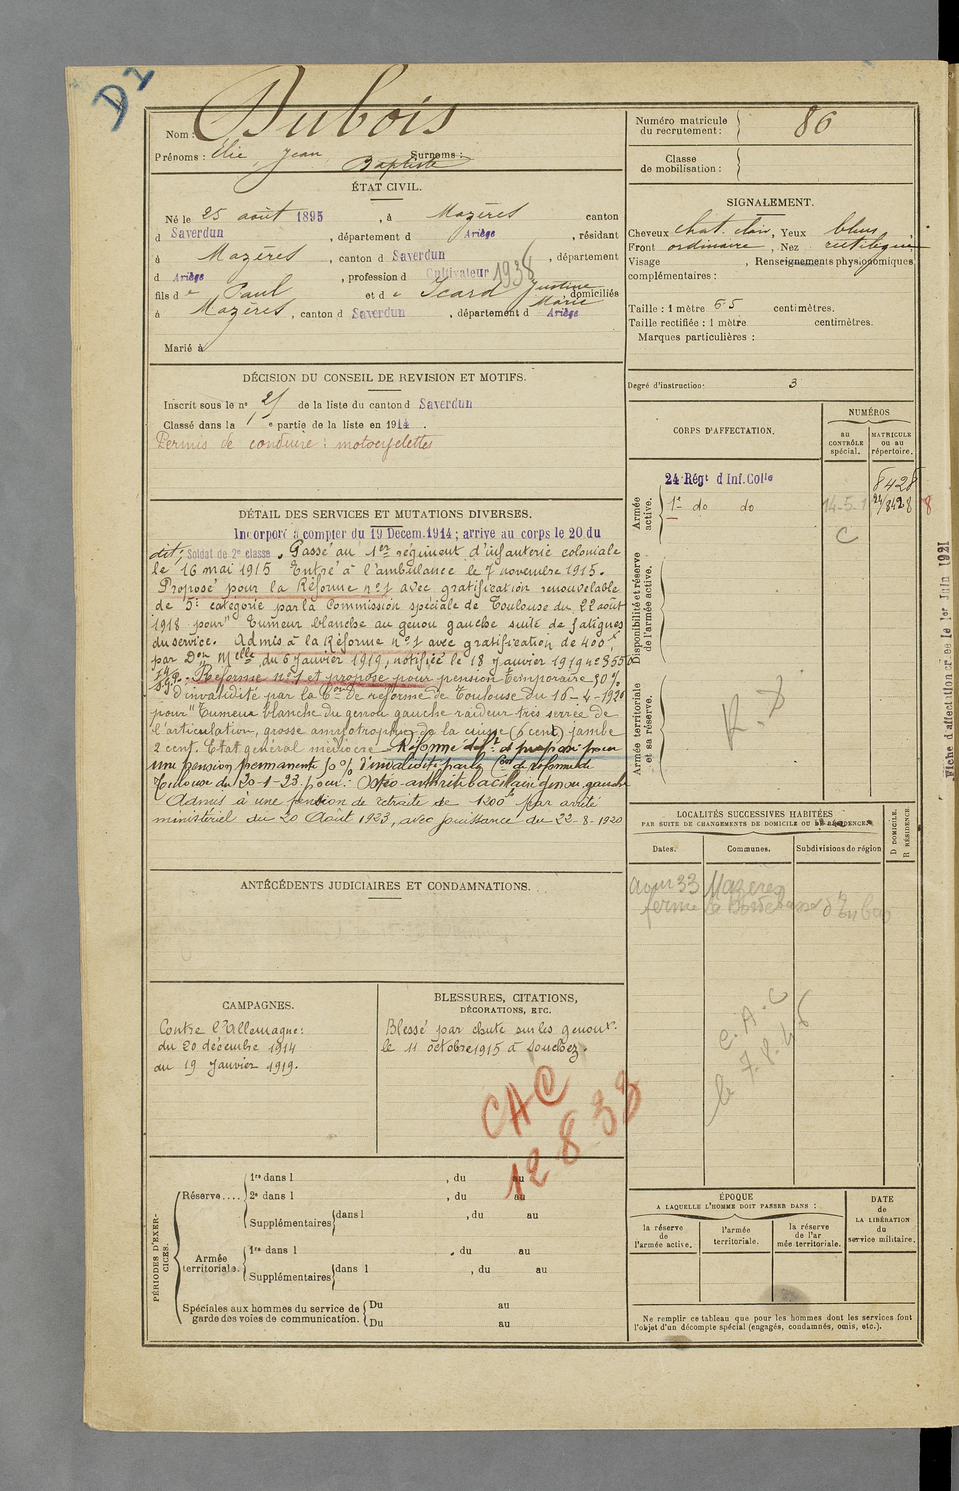 D 2
Nom : Dubois
Prénoms : Elie, Jean, Baptiste Surnoms :
ÉTAT CIVIL.
Né le 25 août 1895, à Mazères canton
d Saverdun, département d Ariège, résidant
à Mazères, canton d Saverdun, département
d Ariège, profession d Cultivateur 1938
fils de Paul et de Icard Justine Marie domiciliés
à Mazères, canton d Saverdun, département d Ariège
Marié à
DÉCISION DU CONSEIL DE REVISION ET MOTIFS.
Inscrit sous le n° 21 de la liste du canton d Saverdun
Classé dans la 1e partie de la liste en 1914.
Permis de conduire : motocyclettes
DÉTAIL DES SERVICES ET MUTATIONS DIVERSES.
Incorporé à compter du 19 Décem. 1914 ; arrive au corps le 20 du
dit, Soldat de 2e classe. Passé au 1er régiment d'infanterie coloniale
le 16 mai 1915 Entré à l'ambulance le 7 novembre 1915.
Proposé pour la Réforme n°1 avec gratification renouvelable
de 5e catégorie par la Commission spéciale de Toulouse du 22 août
1918 pour "Tumeur blanche au genou gauche suite de fatigues
du service. Admis à la Réforme n°1 avec gratification de 400f
par Don Melle du 6 Janvier 1919, notifiée le 18 Janvier 1919 n°
Réformé n°1 et proposé pour pension temporaire 50%
d'invalidité par la Con de réforme de Toulouse du 16-4-1920
pour "Tumeur blanche du genou gauche raideur très serrée de
l'articulation, grosse amyotrophie de la cuisse (5 cent) jambe
2 cent. Etat général médiocre. Réformé deft et proposé pour
une pension permanente 50% d'invalidité par la Con de réforme de
Toulouse du 20-1-23 pour : Ostéo-arthrite bacillaire genou gauche
Admis à une pension de retraite de 1200f par arrêté
ministériel du 20 Août 1923, avec jouissance du 22-8-1920
ANTÉCÉDENTS JUDICIAIRES ET CONDAMNATIONS.
CAMPAGNES.
Contre l'Allemagne :
du 20 décembre 1914
au 19 Janvier 1919.
BLESSURES, CITATIONS,
DÉCORATIONS, ETC.
Blessé par chute sur les genoux
le 11 octobre 1915 à Souchez.
CAC
12 8 33
PÉRIODES D'EXERCICES.
Réserve....
1re dans l , du au
2e dans l , du au
Supplémentaires dans l , du au
Armée territoriale.
1re dans l , du au
Supplémentaires dans l , du au
Spéciales aux hommes du service de garde des voies de communication.
Du au
Du au
Numéro matricule
du recrutement : 86
Classe
de mobilisation :
SIGNALEMENT.
Cheveux chat. clair, Yeux bleus,
Front ordinaire, Nez rectiligne
Visage , Renseignements physionomiques
complémentaires :
Taille : 1 mètre 65 centimètres.
Taille rectifiée : 1 mètre centimètres.
Marques particulières :
Degré d'instruction : 3
CORPS D'AFFECTATION.
NUMÉROS
au
CONTRÔLE
spécial.
MATRICULE
ou au
répertoire.
Armée
active.
24 Régt d Inf. Colle 8428
1er do do 14-5-1 24/8428 8
C
Disponibilité et réserve
de l'armée active.
Armée territoriale
et sa réserve.
R. 8
LOCALITÉS SUCCESSIVES HABITÉES
PAR SUITE DE CHANGEMENTS DE DOMICILE OU DE RÉSIDENCE.
Dates.
Communes.
Subdivisions de région
D DOMICILE.
R RÉSIDENCE.
33 Mazères
ferme
C.A.C
le 7.8.
ÉPOQUE
A LAQUELLE L'HOMME DOIT PASSER DANS :
la réserve
de
l'armée active.
l'armée
territoriale.
la réserve
de l'ar
mée territoriale.
DATE
de
LA LIBÉRATION
du
service militaire.
Ne remplir ce tableau que pour les hommes dont les services font
l'objet d'un décompte spécial (engagés, condamnés, omis, etc.).
Fiche d'affectation créée le 1er Juin 1921